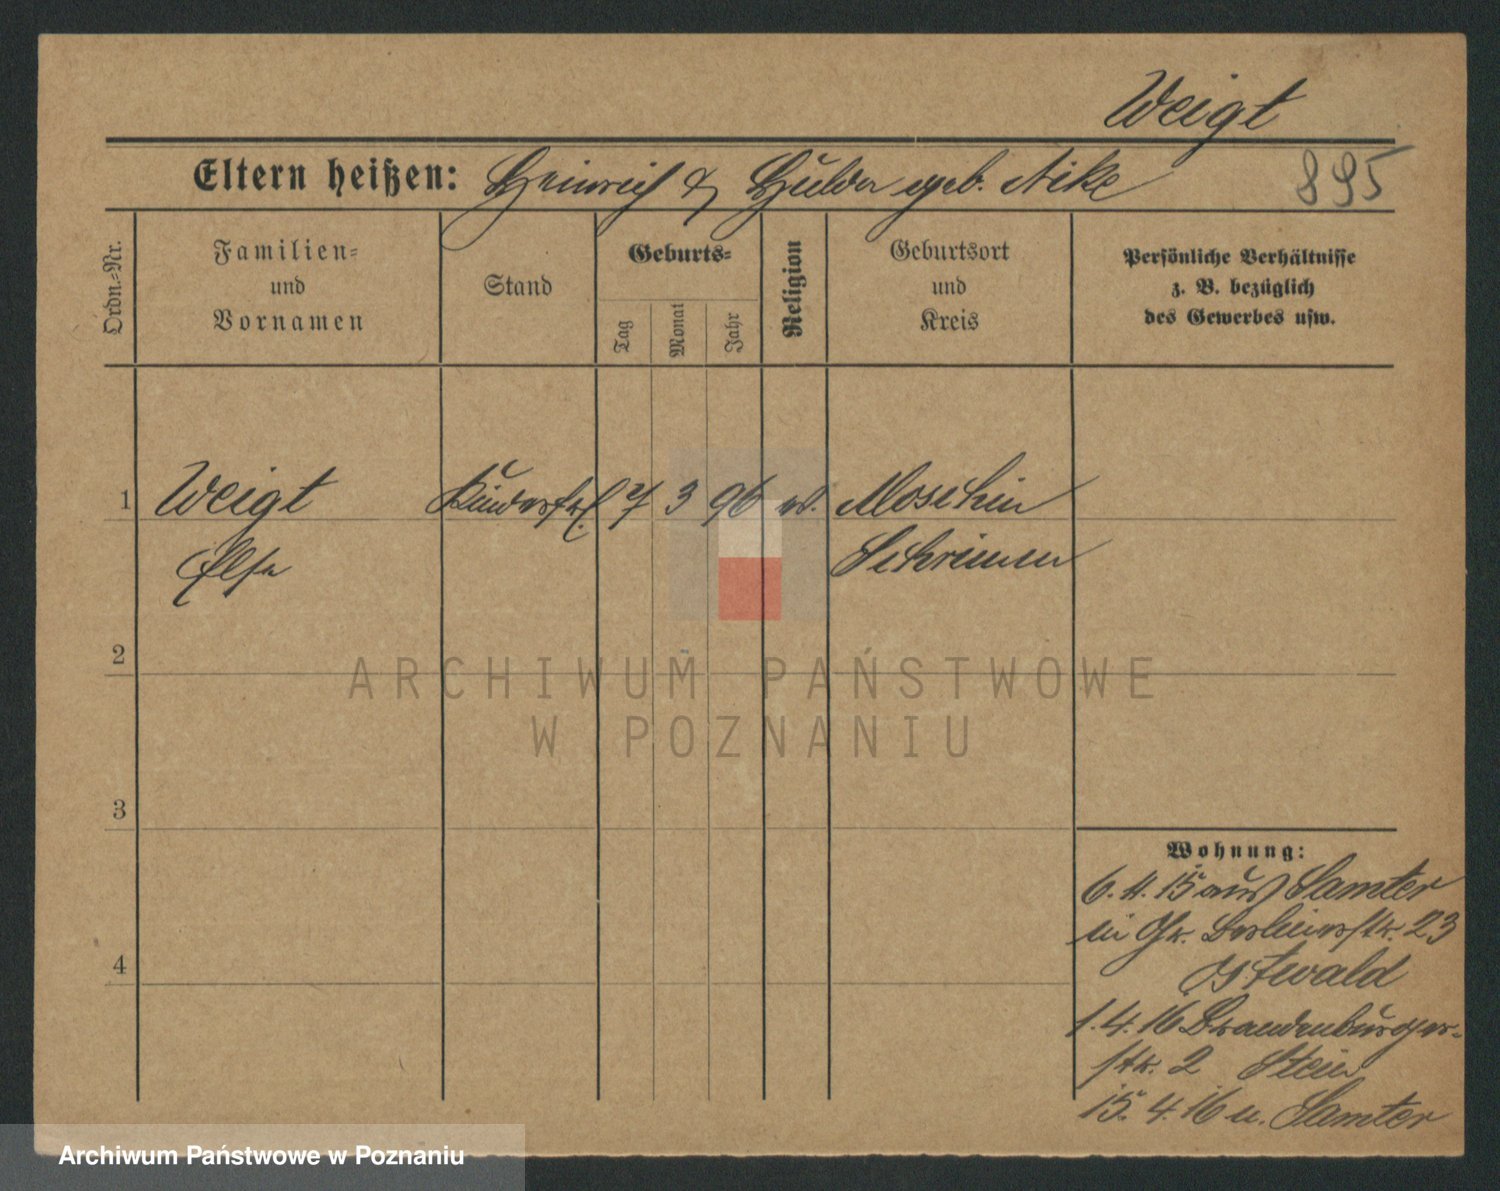 Weigt
895
Eltern heißen: Heinrich & Hulda geb. Nike
Ordn.-Nr.
Familien-
und
Vornamen
Stand
Geburts-
Tag
Monat
Jahr
Religion
Geburtsort
und
Kreis
Persönliche Verhältnisse
z. B. bezüglich
des Gewerbes usw.
1 Weigt Kinderfrl. 7 3 96 ev. Moschin
Else Schrimm
2
ARCHIWUM PAŃSTWOWE
W POZNANIU
3
Wohnung:
6. 4. 15 aus Samter
in Gr. Berlinerstr. 23
Ostwald
4
1. 4. 16 Brandenburger-
str. 2 Stein
15. 4. 16 n. Samter
Archiwum Państwowe w Poznaniu